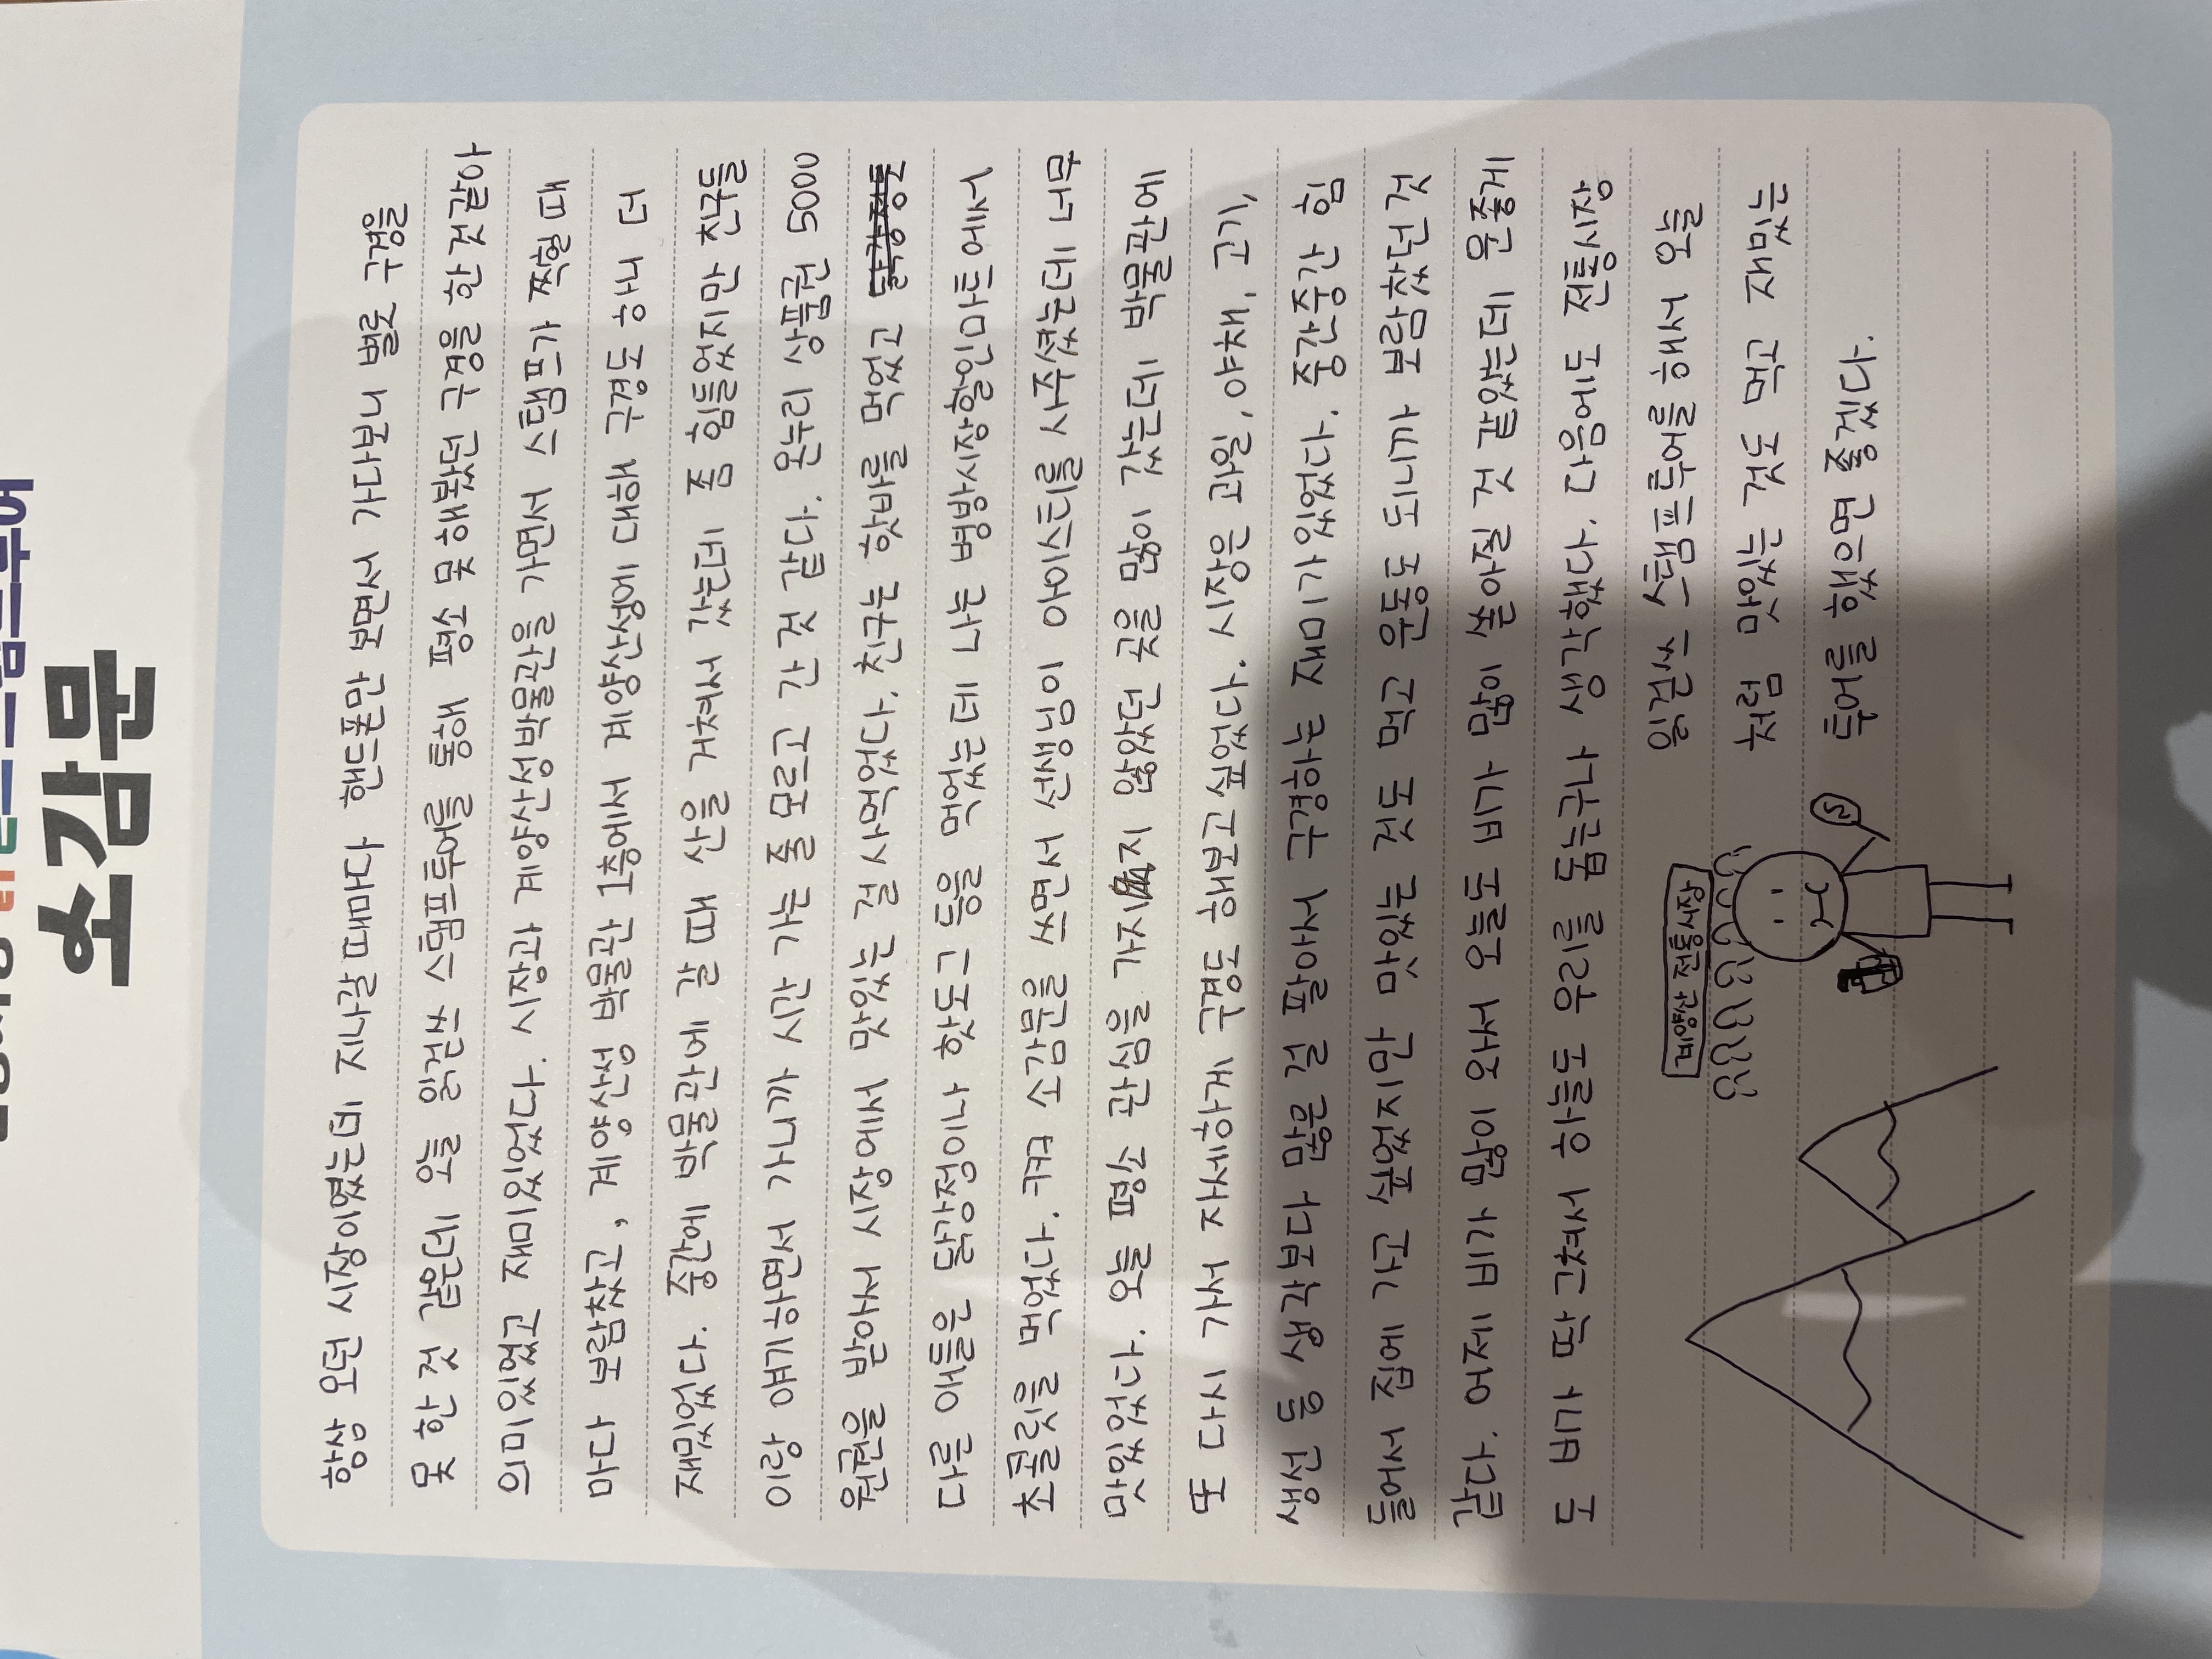 소감문
항상 오던 시장이였는데 지나갈 때마다 핸드폰만 보면서 가다보니 별로 구경을
못 한 것 같은데 오늘 읽걷쓰 스탬프투어를 통해 평소 못 해봤던 구경을 한 것 같아
의미있었고 재미있었다. 시장과 계양산성박물관을 가면서 스탬프가 찍힐 때
마다 보람찼고, 계양산성 박물관 1층에서 계양산성에 대해 구경도 하니 더
재밌었다. 중간에 박물관에 갈 때 산을 거쳐서 갔는데 좀 힘들었지만 친구들
이랑 얘기하면서 가니까 시간 가는 줄 모르고 간 것 같다. 온누리 상품권 5000
원권을 받아서 시장에서 맛있는 걸 사먹었다. 친구는 핫바를 먹었고
다른 애들은 닭강정이나 핫도그 등을 먹었는데 나는 병방시장할인마트에서
초콜릿을 먹었다. ㅋㅋㅋ 소감문을 쓰면서 선생님이 아이스티를 사주셨는데 너무
맛있었다. 오늘 평소 관심을 가지지 않았던 곳을 많이 갔는데 박물관에
또 다시 가서 자세하게 구경도 해보고 싶었다. 시장은 과일, 야채, 고기,
생선 등 생각보다 많은 걸 팔아서 구경하는 재미가있었다. 중간중간 힘
들어서 집에 가고 싶었지만 맛있는 것도 먹고 운동도 되니까 보람찼던 것
같다. 어제 비가 많이 와서 오늘도 비가 많이 쏟아질 것 같았는데 운좋게
도 비가 딱 그쳐서 하늘도 우리를 돕는구나 생각했다. 다음에도 전통시장
읽걷쓰 스탬프투어를 해서 오늘
처럼 맛있는 것도 먹고 재밌는
투어를 했으면 좋겠다.
계양산 전통시장